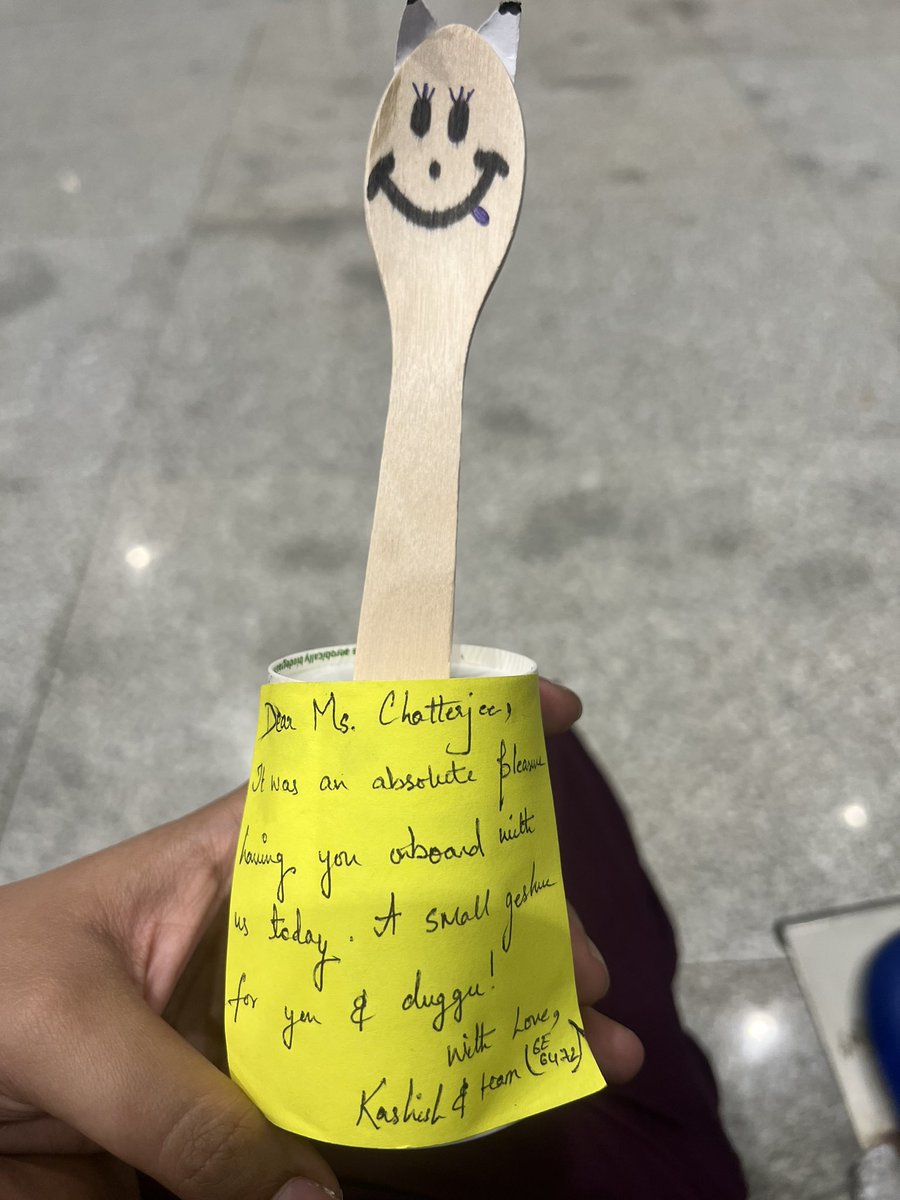 s aerobically biodegra
Dear Ms. Chatterjee,
It was an absolute pleasure
having you onboard with
us today. A small gesture
for you & duggu!
with Love,
Kashish & team (6E
6472)